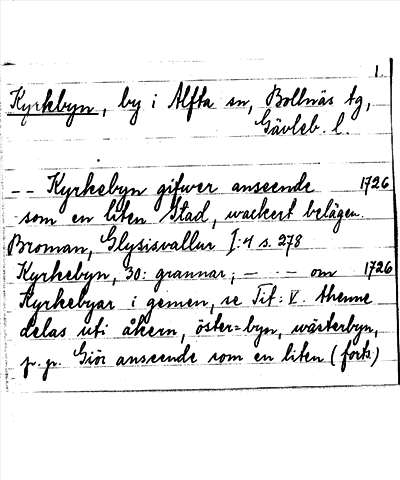 1.
Kyrkbyn, by i Alfta sn, Bollnäs tg,
Gävleb. l.
-- Kyrkebyn gifwer anseende 1726
som en liten Stad, wackert belägen.
Broman, Glysisvallur I:4 s. 278
Kyrkebyn, 30: grannar, - - - om 1726
Kyrkebyar i gemen, se Tit: V. thenne
delas uti åkern, öster=byn, wästerbyn,
p. p. Giör anseende som en liten (forts)